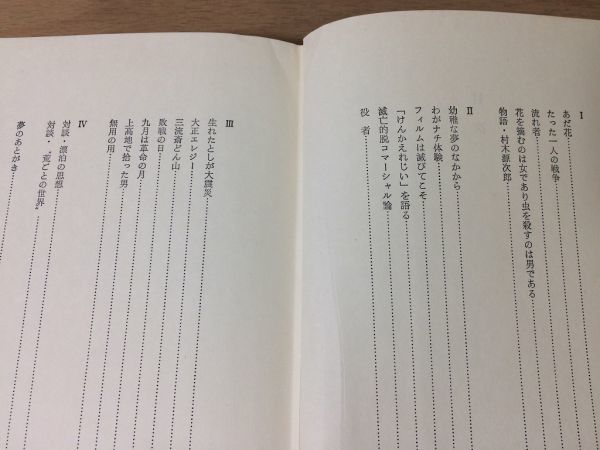 I
あだ花
たった一人の戦争
流れ者
花を摘むのは女であり虫を殺すのは男である
物語・村木源次郎
II
幼稚な夢のなかから
わがナチ体験
フィルムは滅びてこそ
「けんかえれじい」を語る
滅亡的脱コマーシャル論
役者
III
生れたとしが大震災
大正エレジー
三流斎どん山
敗戦の日
九月は革命の月
上高地で拾った男
無用の用
IV
対談・漂泊の思想
対談・"荒ごとの世界
夢のあとがき